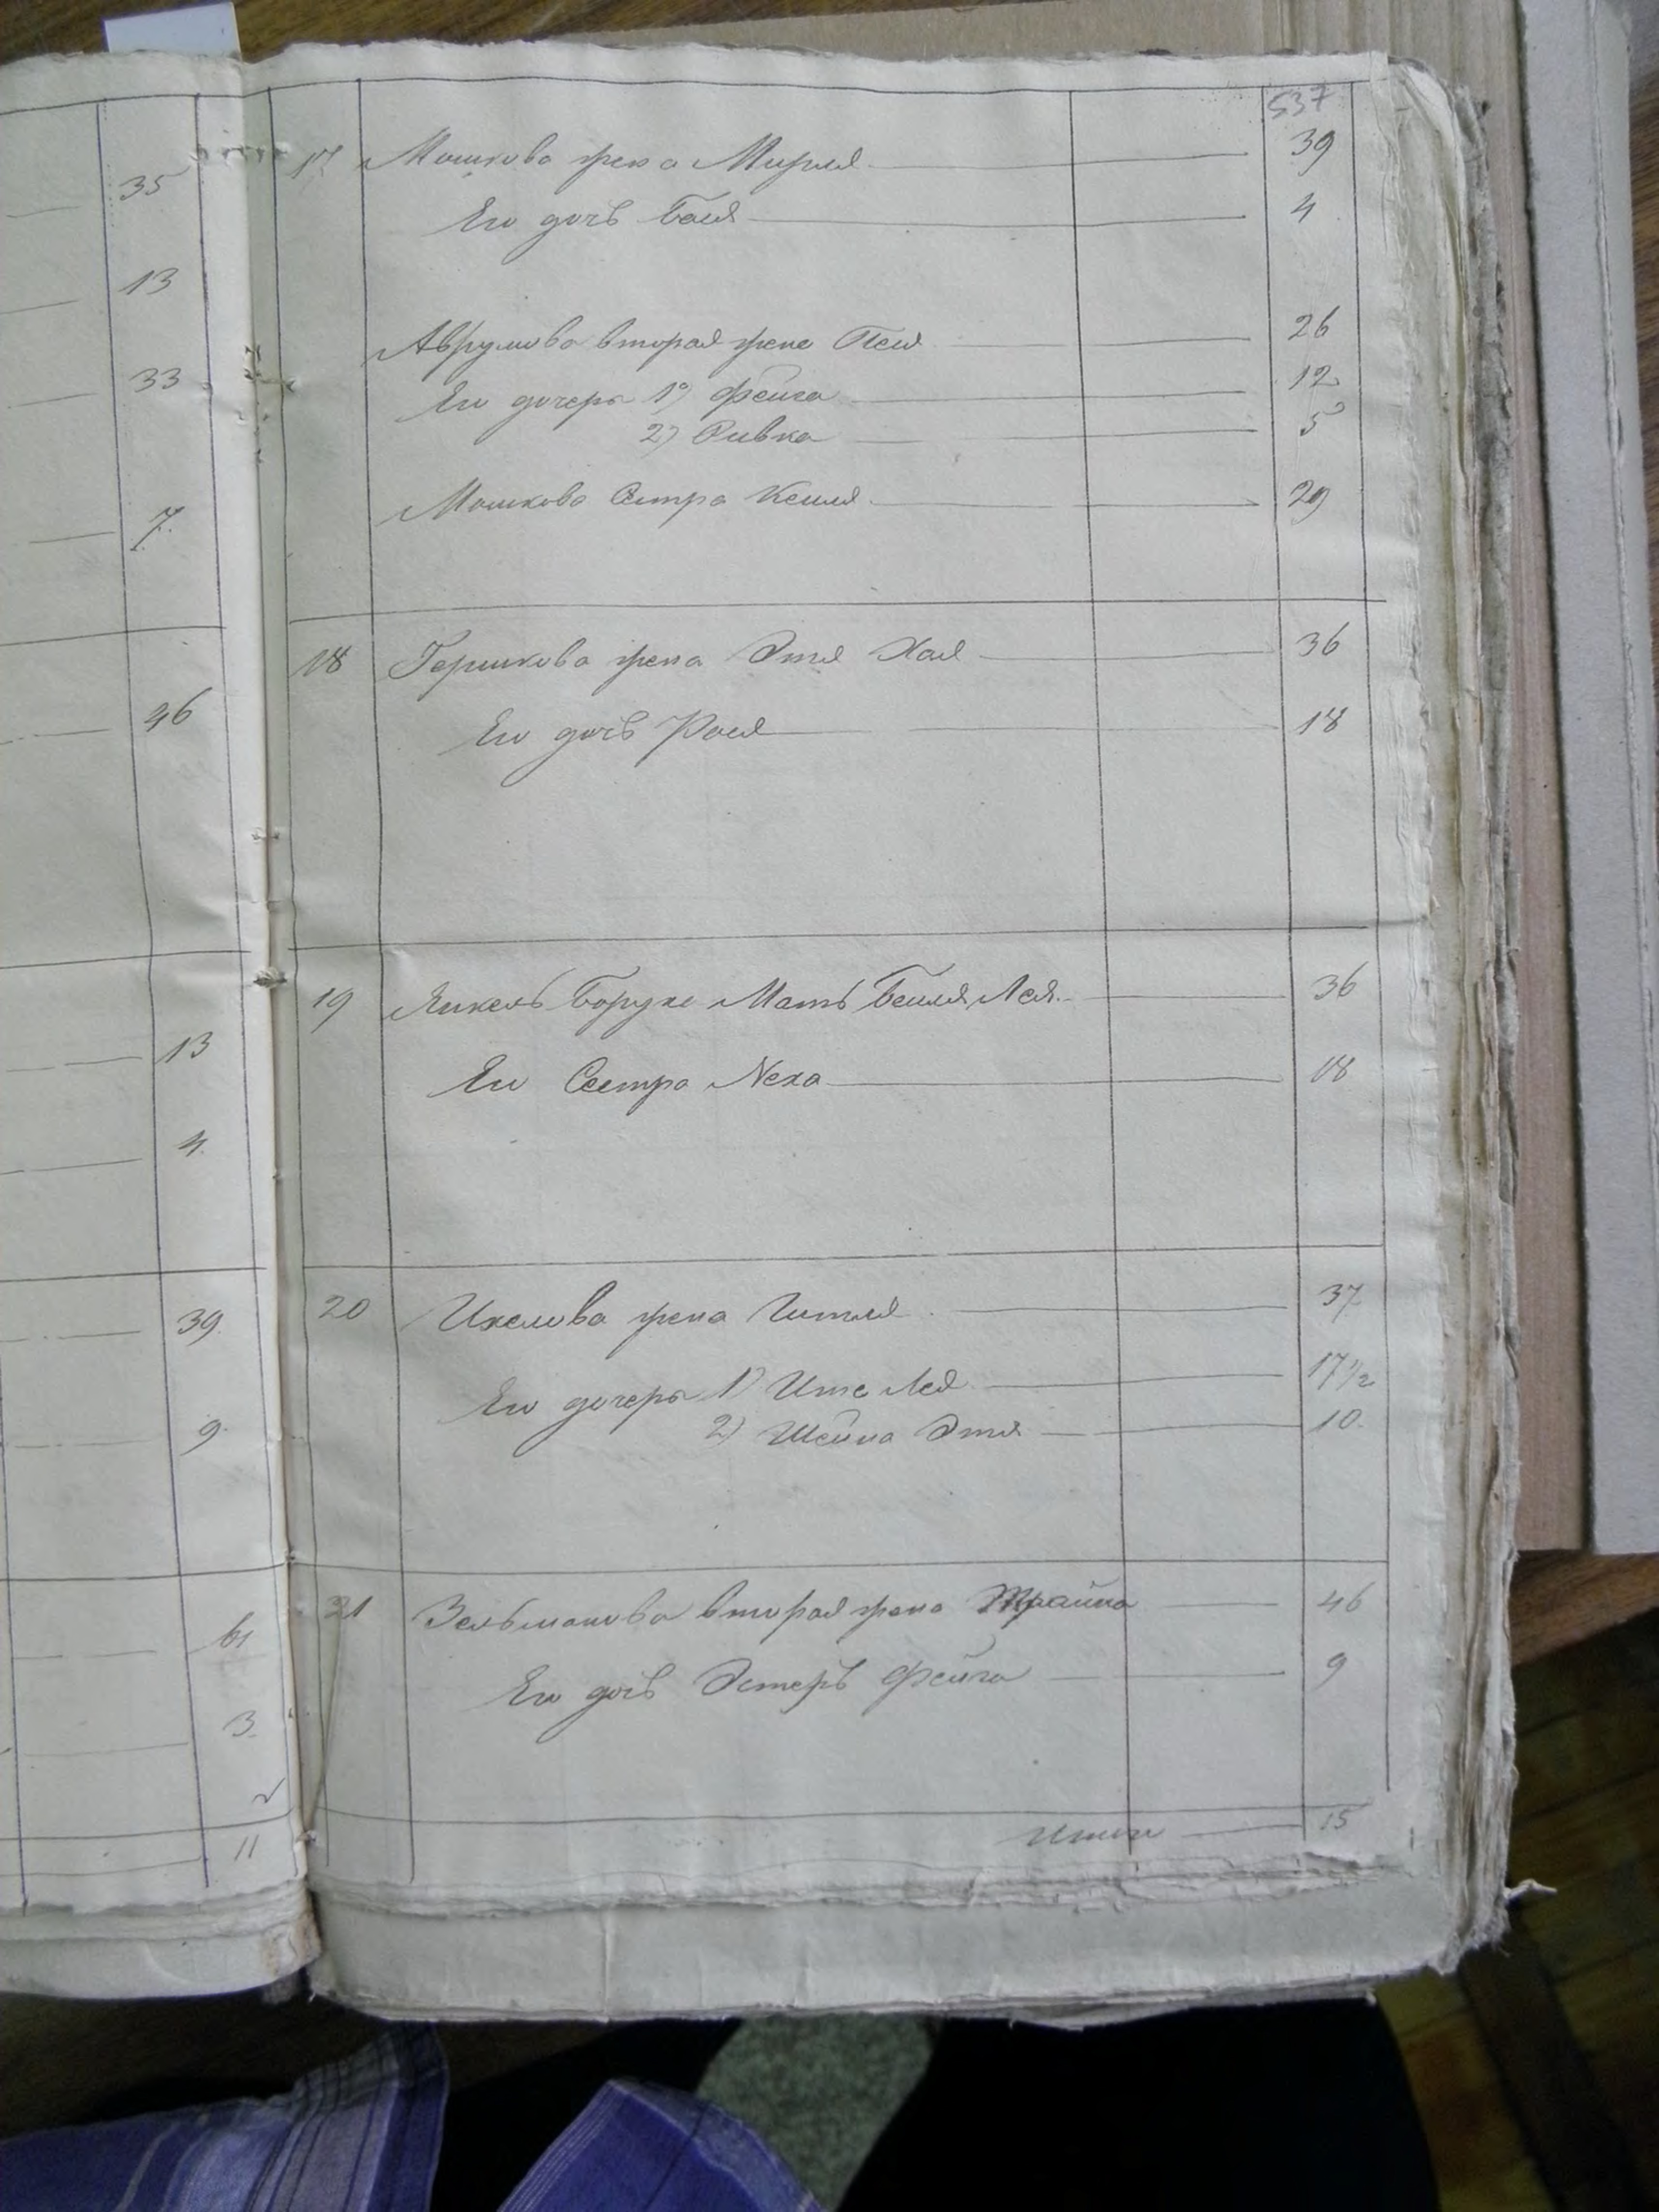 35
13
33
7.
46
13
4.
39.
9.
61
3.
11
537
17 Мошкова жена Мирля 39
Его дочь Бася 4
Аврумова вторая жена Песя 26
Его дочери 1) Фейга 12
2) Ривка 5
Мошкова Сестра Кейля 29
18 Гершкова жена Этля Хая 36
Его дочь Роля 18
19 Янкель Боруха Мать Бейля Лея 36
Его Сестра Неха 18
20 Ихелова жена Гитля 37
Его дочери 1) Ите Лея 17 1/2
2) Шейна Этля 10.
21 Зельманова вторая жена Трайна 46
Его дочь Эстерь Фейга 9
Итого 15